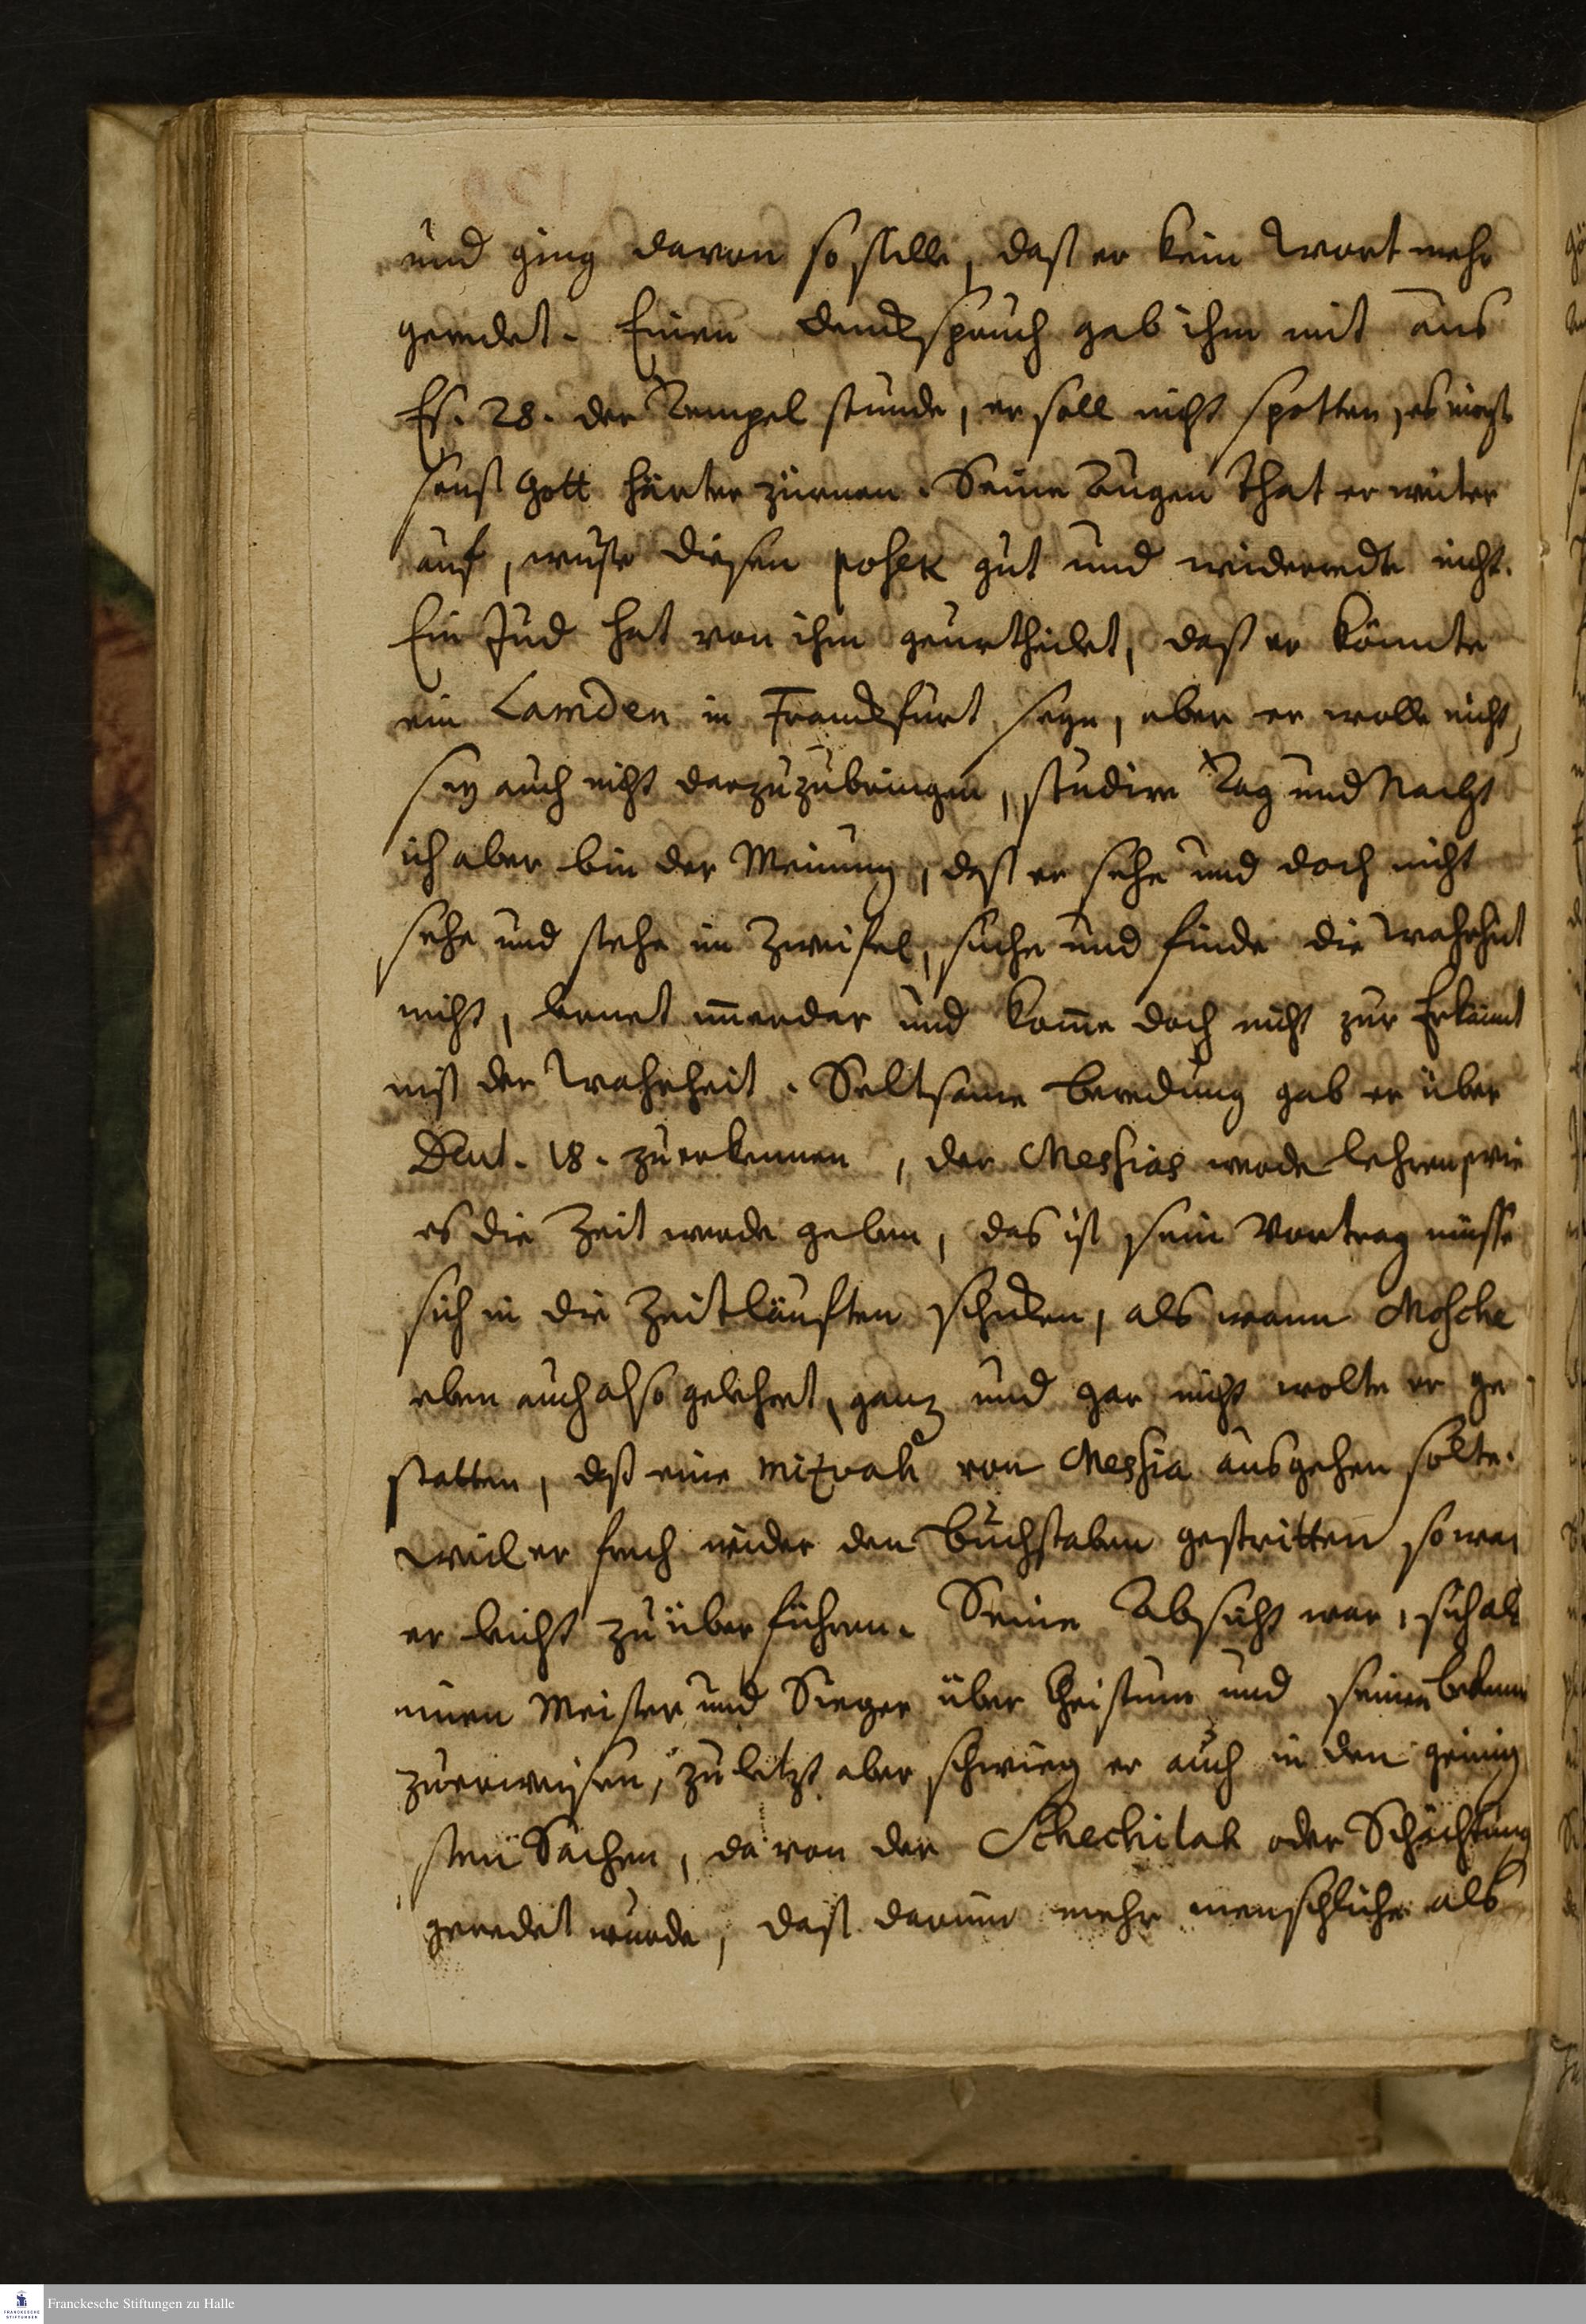 und ging davon so stille, daß er kein Wort mehr
geredet. Einen denckspruch gab ihm mit aus
Es. 28. der Tempel stunde, er soll nicht spotten, es möchte
sonst Gott härter zürnen. Seine Augen that er weiter
auf, wuste diesen posek gut und wideredte nicht.
Ein Jud hat von ihm geurtheilet, daß er könnte
ein Lamden in Franckfurt seyn, aber er wolle nicht,
sey auch nicht darzuzubringen, studire Tag und Nacht
ich aber bin der Meinung, daß er sehe und doch nicht
sehe und stehe im Zweifel, suche und finde die Wahrheit
nicht, lernet im̄erdar und kom̄e doch nicht zur Erkännt
niß der Wahrheit. Seltsame beredung gab er über
Deut. 18. zuerkennen, der Messias werde lehren, wie
es die Zeit werde geben, das ist sein Vortrag müsse
sich in die Zeitläufften schicken, als wann Mosche
eben auch also gelehret, ganz und gar nicht wolte er ge-
statten, daß eine mitzvah von Messia ausgehen solte.
Weil er frech wider den buchstaben gestritten so war
er leicht zu überführen. Seine Absicht war, sich als
einen Meister und Sieger über Christum und seine bekenner
zuerweisen, zu letzt aber schwieg er auch in den gering
sten Sachen, da von der Schechitah oder Schächtung
geredet wurde, daß darinn mehr menschliche als
Franckesche Stiftungen zu Halle